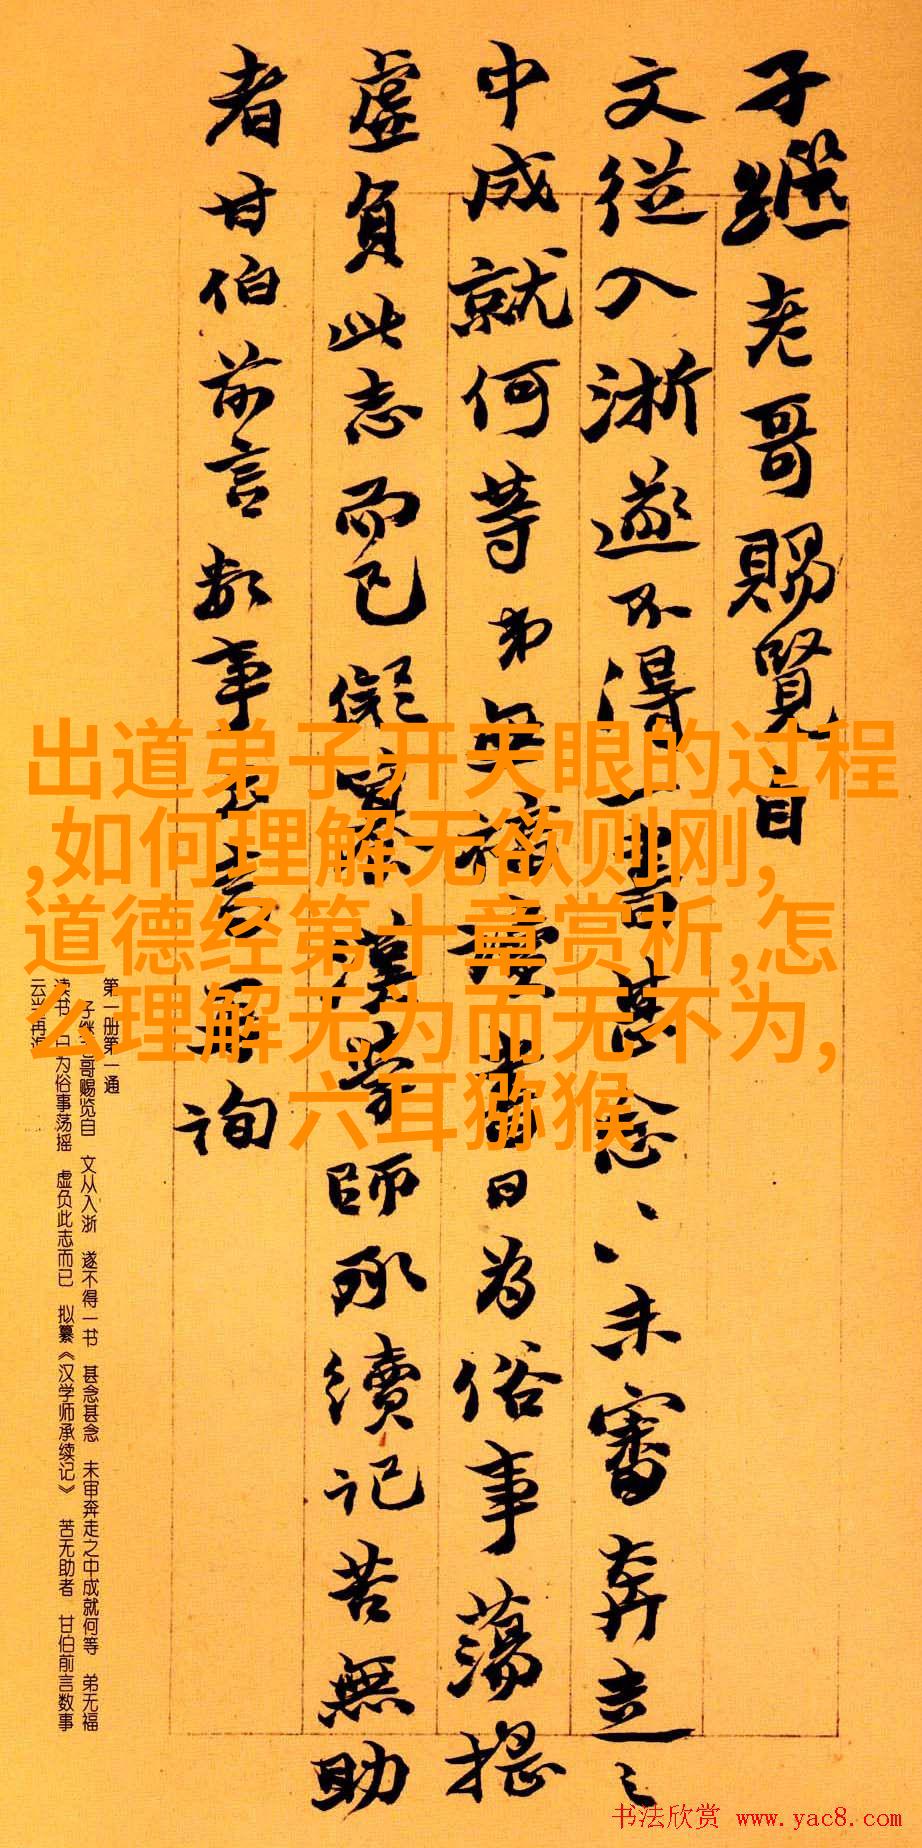 子继老哥赐览自
文从入浙遂不得一书甚念〻未审奔走之
中成就何等弟无福读书日为俗事荡摇
虚负此志而已拟纂汉学师承续记苦无助
者甘伯前言数事云当再询
出道弟子开天眼的过程
,如何理解无欲则刚,
道德经第十章赏析,怎
么理解无为而无不为,
六耳猕猴
第一册第一通
子继老哥赐览自 文从入浙 遂不得一书 甚念甚念 未审奔走之中成就何等 弟无福
读书 日为俗事荡摇 虚负此志而已 拟纂《汉学师承续记》 苦无助者 甘伯前言数事
云当再询
书法欣赏 www.yac8.com